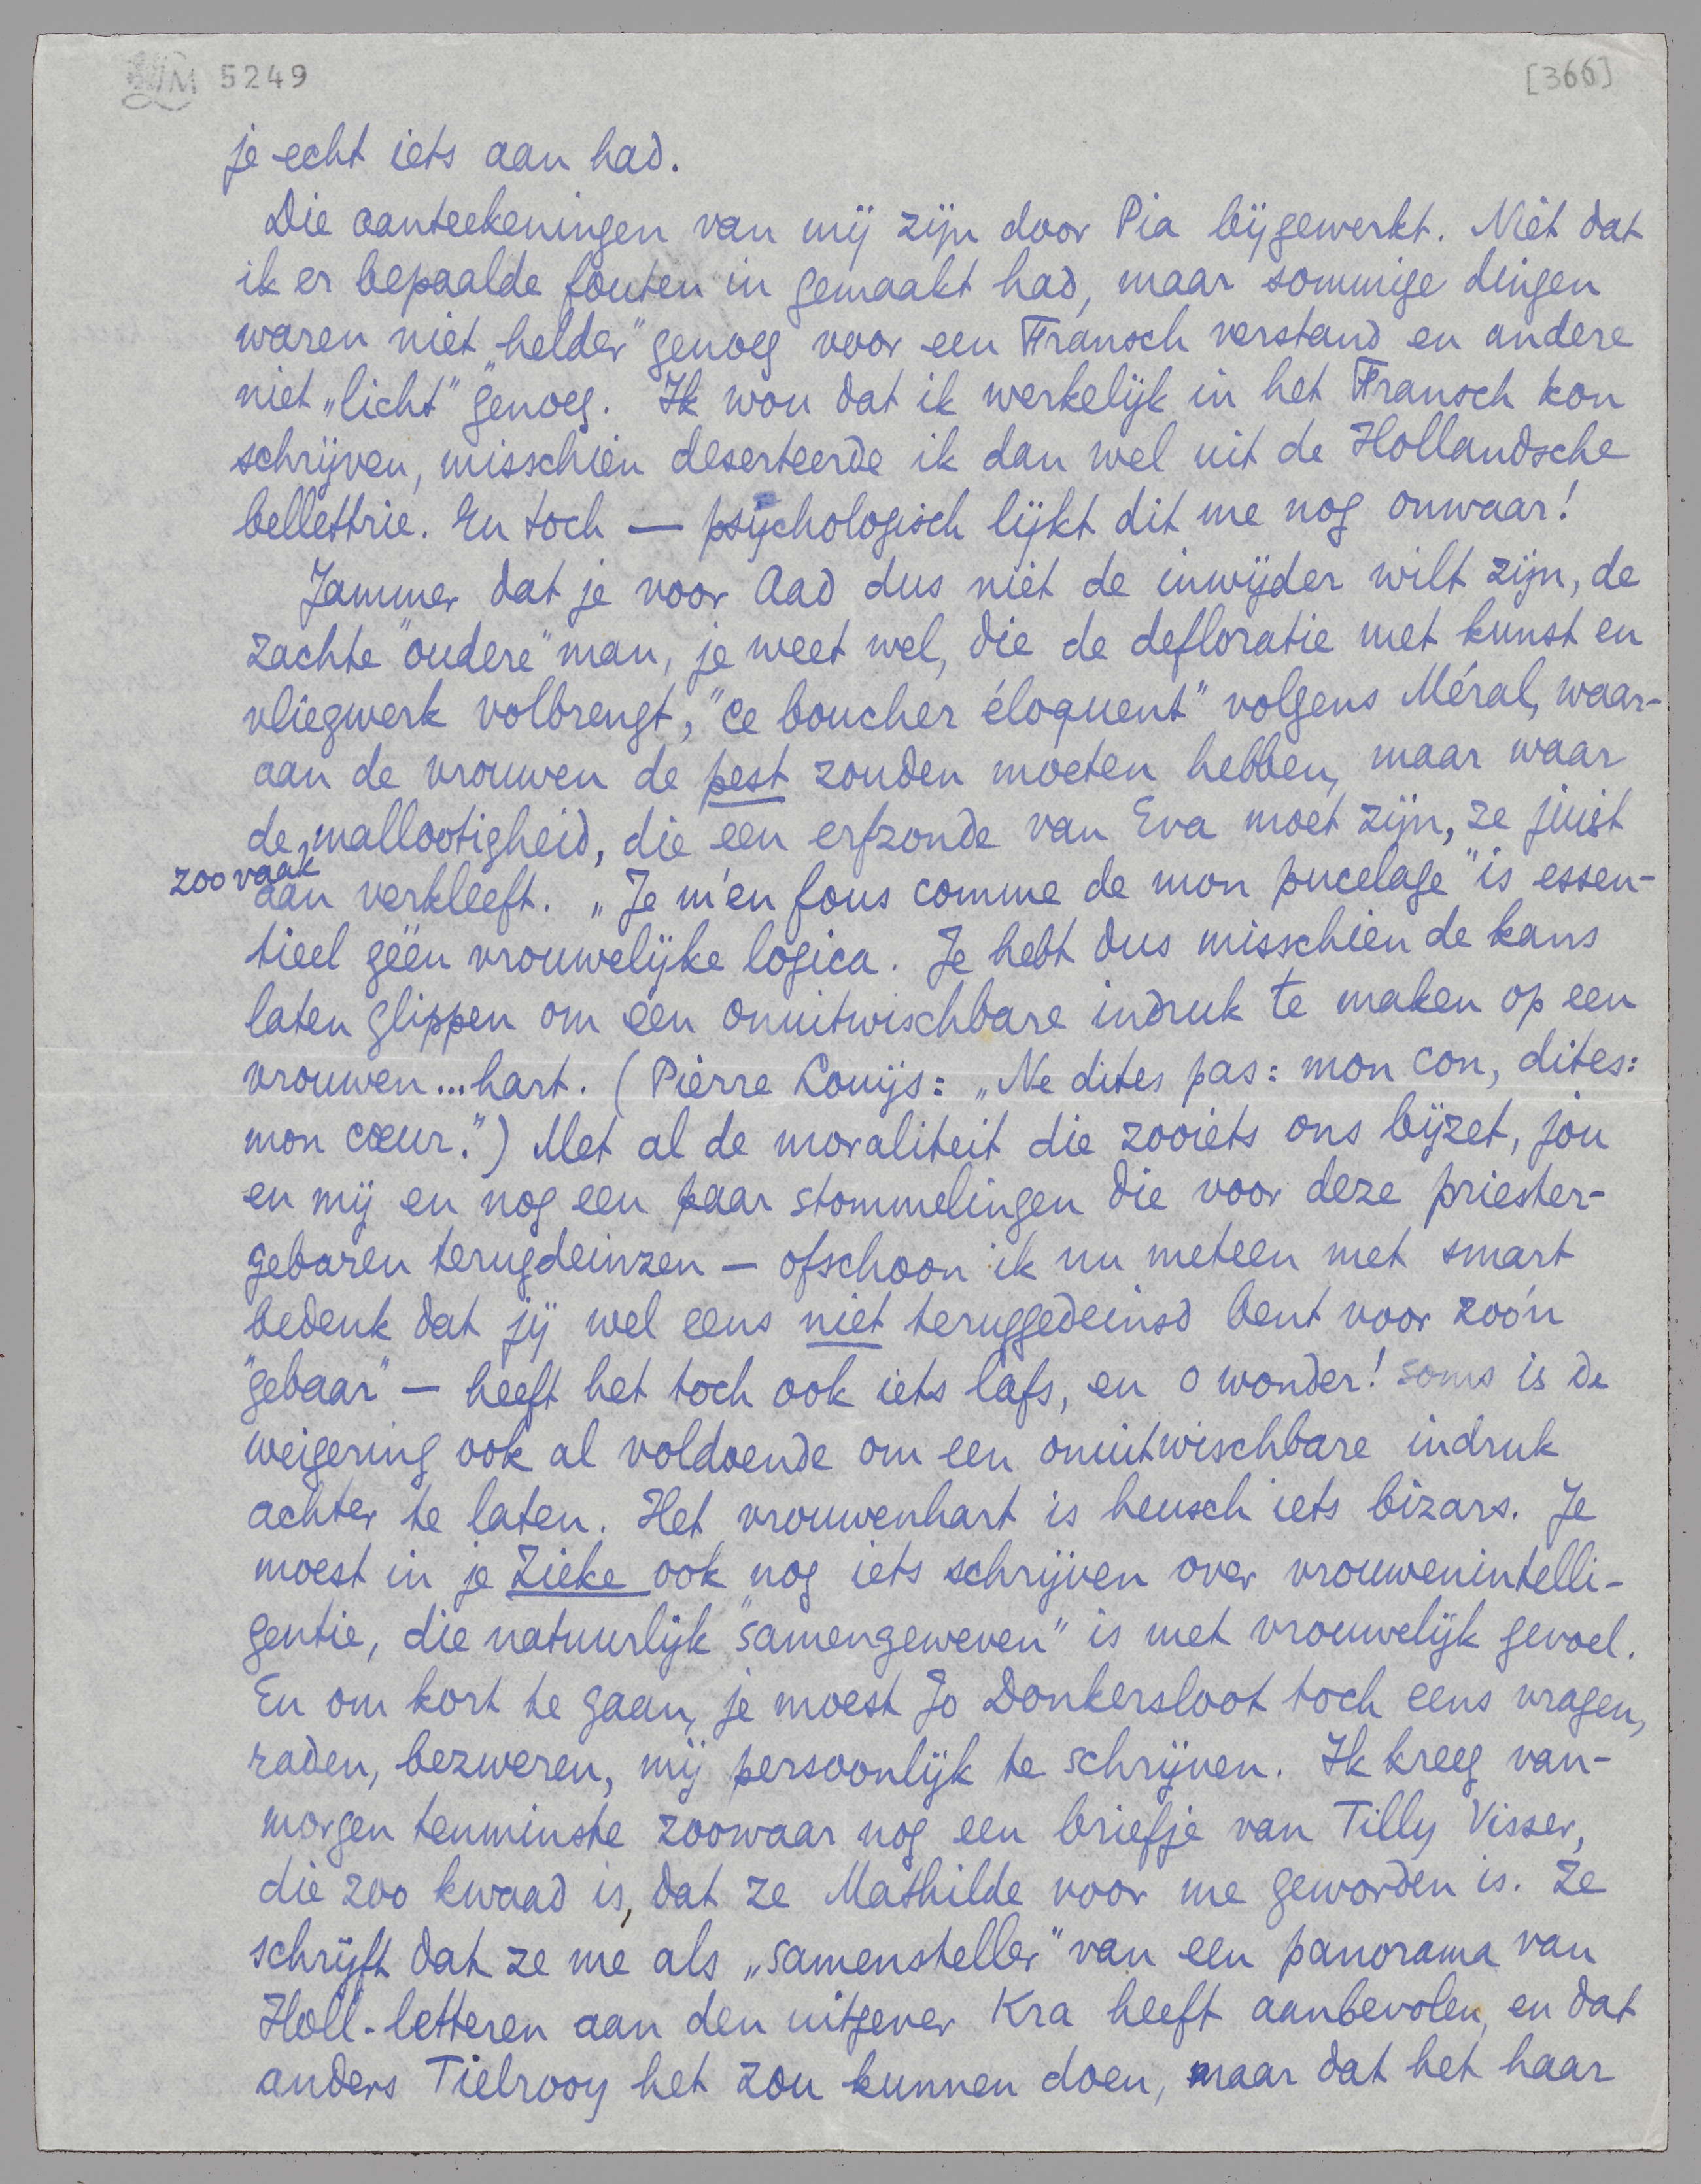 5249
[366]
je echt iets aan had.
Die aanteekeningen van mij zijn door Pia bijgewerkt. Niet dat
ik er bepaalde fouten in gemaakt had, maar sommige dingen
waren niet „helder" genoeg voor een Fransch verstand en andere
niet „licht" genoeg. Ik wou dat ik werkelijk in het Fransch kon
schrijven, misschien deserteerde ik dan wel uit de Hollandsche
bellettrie. En toch — psychologisch lijkt dit me nog onwaar!
Jammer dat je voor Aad dus niet de inwijder wilt zijn, de
zachte "oudere" man, je weet wel, die de defloratie met kunst en
vliegwerk volbrengt, "ce boucher éloquent" volgens Méral, waar-
aan de vrouwen de pest zouden moeten hebben, maar waar
de mallootigheid, die een erfzonde van Eva moet zijn, ze juist
zoo vaak
aan verkleeft. „Je m'en fous comme de mon pucelage" is essen-
tieel géén vrouwelijke logica. Je hebt dus misschien de kans
laten glippen om een onuitwischbare indruk te maken op een
vrouwen...hart. (Pierre Louijs: „Ne dites pas: mon con, dites:
mon cœur.") Met al de moraliteit die zooiets ons bijzet, jou
en mij en nog een paar stommelingen die voor deze priester-
gebaren terugdeinzen — ofschoon ik nu meteen met smart
bedenk dat jij wel eens niet teruggedeinsd bent voor zoo'n
"gebaar" — heeft het toch ook iets lafs, en o wonder! soms is de
weigering ook al voldoende om een onuitwischbare indruk
achter te laten. Het vrouwenhart is heusch iets bizars. Je
moest in je Zieke ook nog iets schrijven over vrouwenintelli-
gentie, die natuurlijk "samengeweven" is met vrouwelijk gevoel.
En om kort te gaan, je moest Jo Donkersloot toch eens vragen,
raden, bezweren, mij persoonlijk te schrijven. Ik kreeg van-
morgen tenminste zoowaar nog een briefje van Tilly Visser,
die zoo kwaad is, dat ze Mathilde voor me geworden is. Ze
schrijft dat ze me als „samensteller" van een panorama van
Holl. letteren aan den uitgever Kra heeft aanbevolen, en dat
anders Tielrooy het zou kunnen doen, maar dat het haar